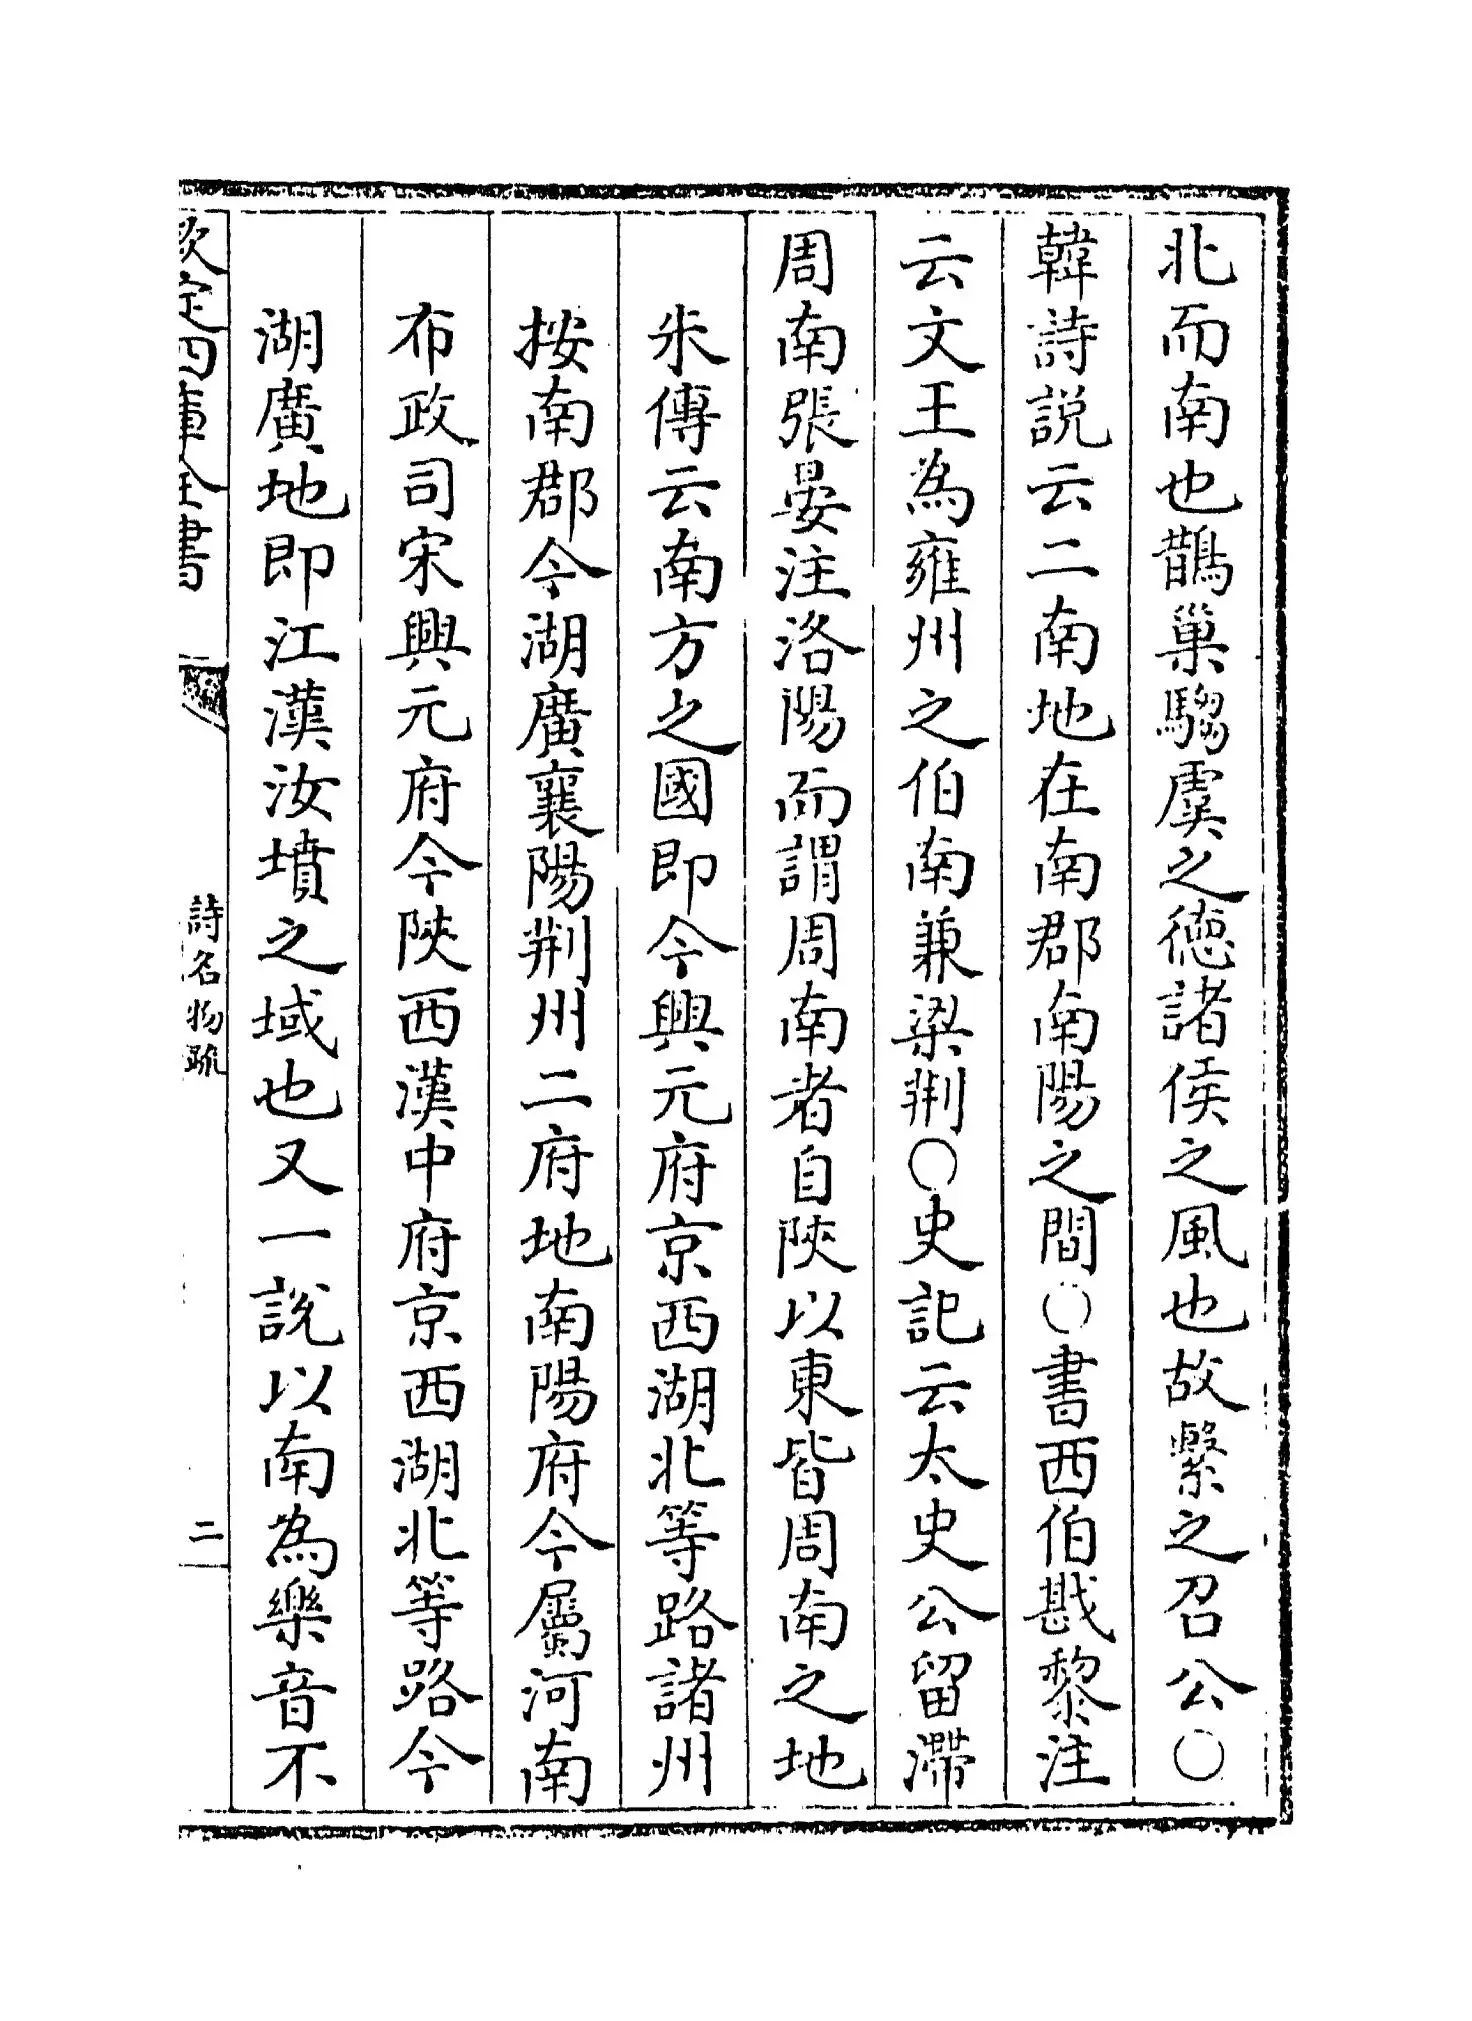 北而南也鵲巢騶虞之德諸侯之風也故繫之召公○
韓詩説云二南地在南郡南陽之間○書西伯戡黎注
云文王為雍州之伯南兼梁荆○史記云太史公留滯
周南張晏注洛陽而謂周南者自陜以東皆周南之地
朱傳云南方之國即今興元府京西湖北等路諸州
按南郡今湖廣襄陽荆州二府地南陽府今屬河南
布政司宋興元府今陜西漢中府京西湖北等路今
湖廣地即江漢汝墳之域也又一説以南為樂音不
欽定四庫全書
詩名物疏
二